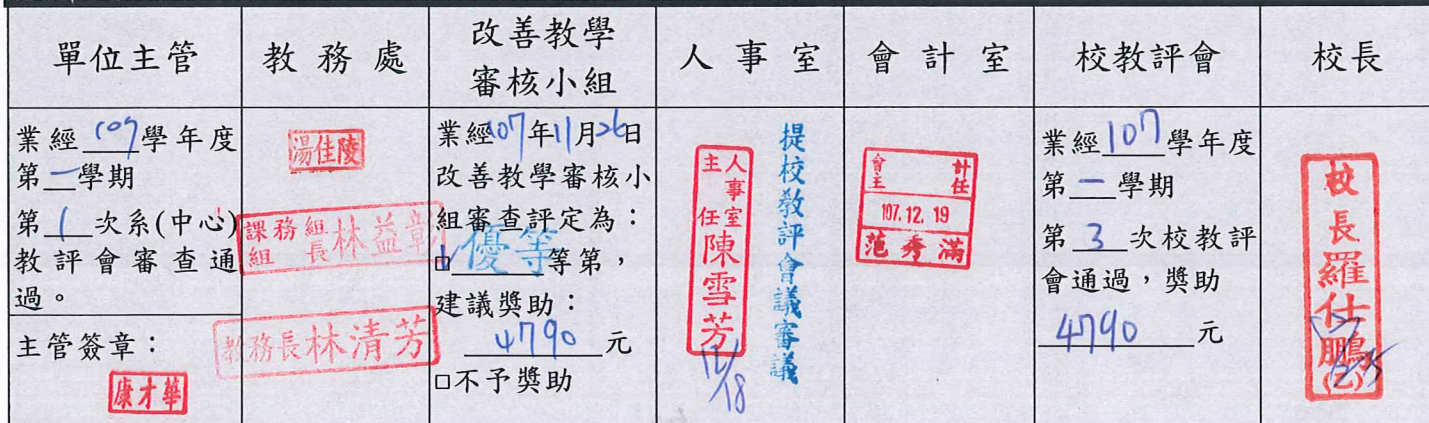 單位主管
教務處
改善教學
審核小組
人事室
會計室
校教評會
校長
業經107學年度
第一學期
第1次系(中心)
教評會審查通
過。
主管簽章：
康才華
湯佳陵
課務組
組長林益彰
教務長林清芳
業經107年11月26日
改善教學審核小
組審查評定為：
□優等等第，
建議獎助：
4790元
□不予獎助
提校教評會議審議
人事室
主任陳雪芳
12/18
會計
主任
107.12.19
范秀滿
業經107學年度
第一學期
第3次校教評
會通過，獎助
4790元
校長羅仕鵬(乙)